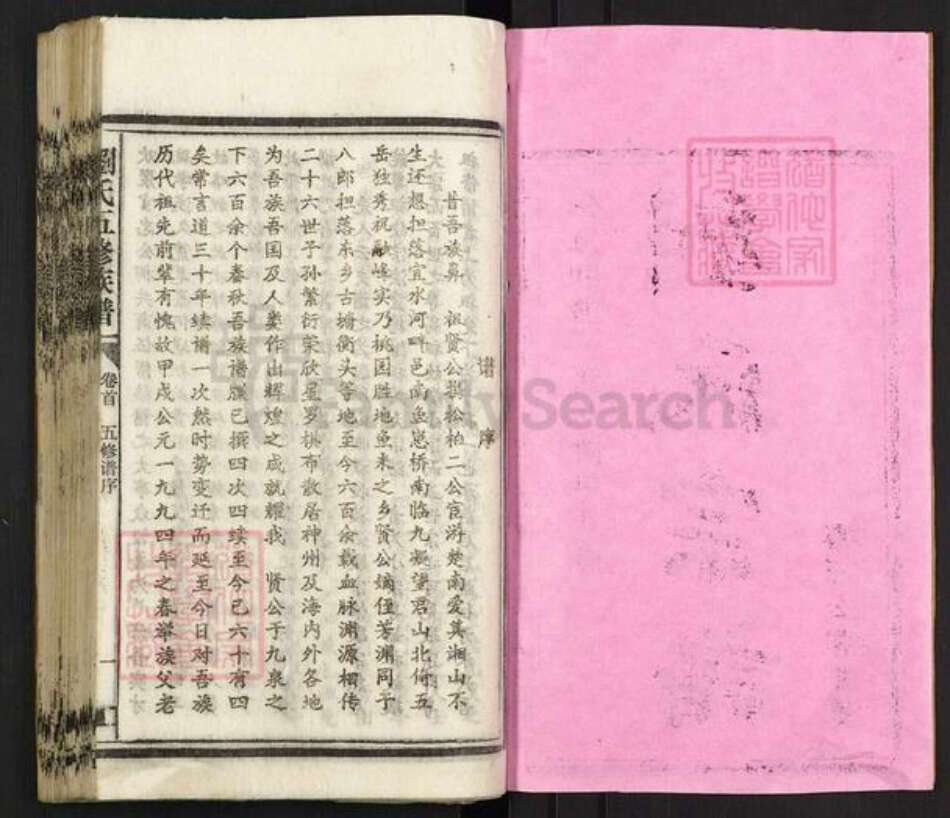 谱序
昔吾族鼻 祖贤公携松柏二公宦游楚南爱其湘山不
生还想担落宜水河畔邑南鱼崽桥南临九凝望君山北倚五
岳独秀祝融峰实乃桃园胜地鱼米之乡贤公嫡侄芳渊同子
八郎担落东乡古塘衡头等地至今六百余载血脉渊源相传
二十六世子孙繁衍荣欣星罗棋布散居神州及海内外各地
为吾族吾国及人娄作出辉煌之成就耀我 贤公于九泉之
下六百余个春秋吾族谱牒已撰四次四续至今已六十有四
矣常言道三十年续谱一次然时势变迁而延至今日对吾族
历代祖先前辈有愧故甲戌公元一九九四年之春举族父老
刘氏五修族谱
卷首 五修谱序
一
FamilySearch